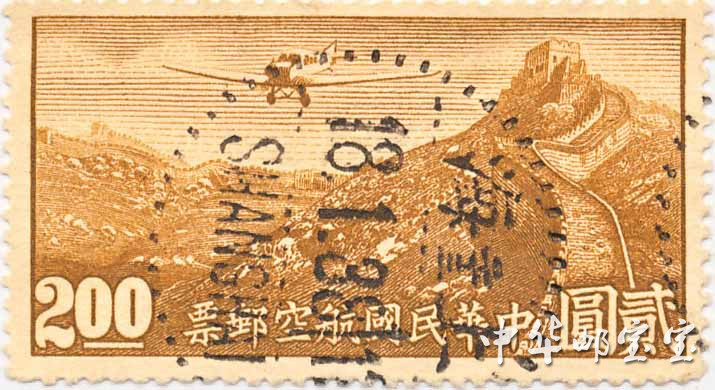 貳圓
中華民國航空郵票
2.00
SHANGH
18.1.36
中华邮宝宝